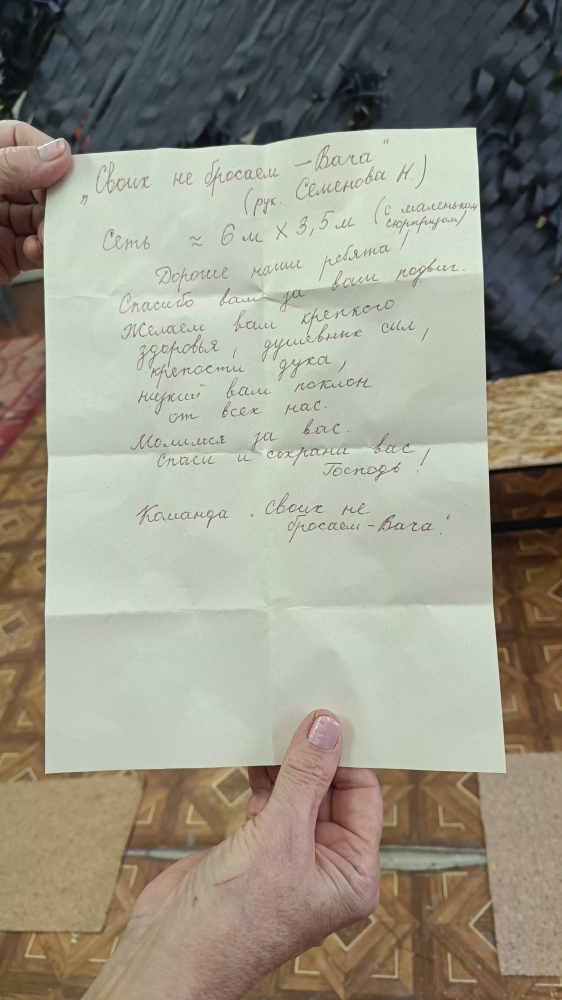 „Своих не бросаем – Вача"
(рук. Семенова Н.)
Сеть ≈ 6 м × 3,5 м (с маленьким
сюрпризом)
Дорогие наши ребята!
Спасибо вам за ваш подвиг.
Желаем вам крепкого
здоровья, душевных сил,
крепости духа,
низкий вам поклон
от всех нас.
Молимся за вас.
Спаси и сохрани вас
Господь!
Команда „Своих не
бросаем – Вача".